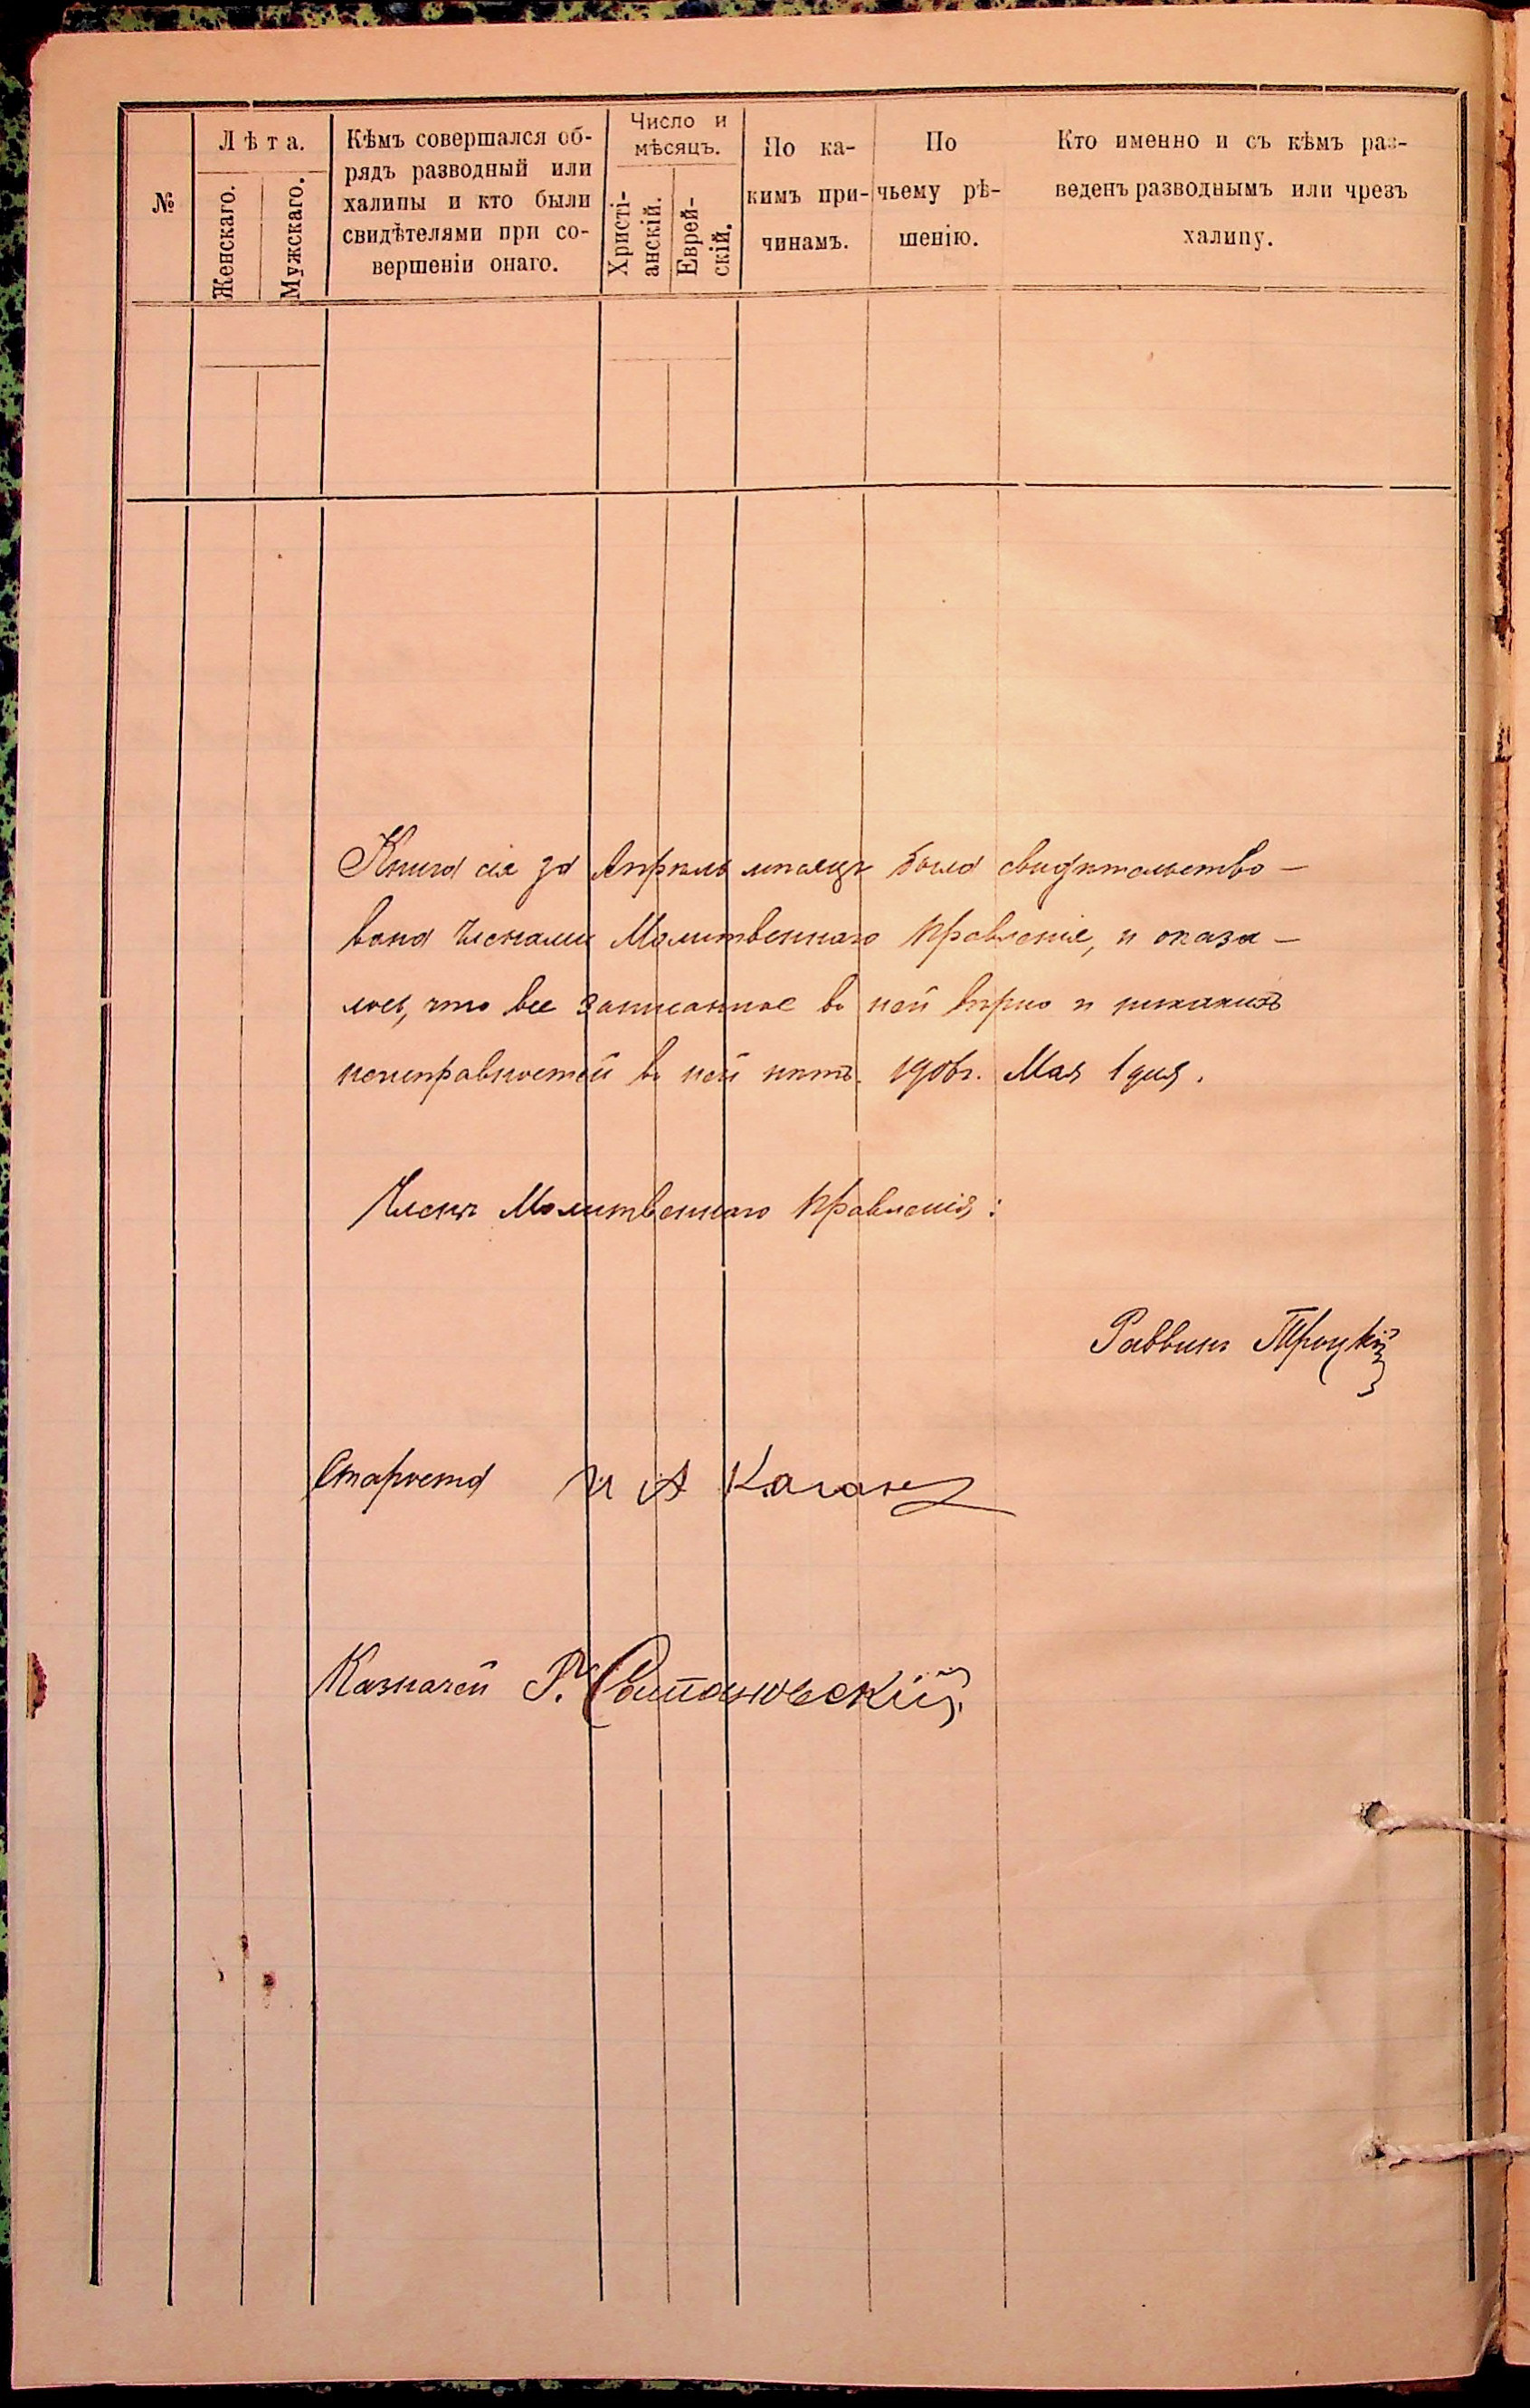 №
Лѣта.
Женскаго.
Мужскаго.
Кѣмъ совершался об-
рядъ разводный или
халицы и кто были
свидѣтелями при со-
вершеніи онаго.
Число и
мѣсяцъ.
Христі-
анскій.
Еврей-
скій.
По ка-
кимъ при-
чинамъ.
По
чьему рѣ-
шенію.
Кто именно и съ кѣмъ раз-
веденъ разводнымъ или чрезъ
халицу.
Книга сія за Апрѣль мѣсяцъ была свидѣтельство-
вана Членами Молитвеннаго Правленія, и оказа-
лось, что все записанное въ ней вѣрно и никакихъ
неисправностей въ ней нѣтъ. 1906г. Мая 1 дня.
Члены Молитвеннаго Правленія:
Раввинъ Троцкій
Староста И А Каганъ
Казначей Р.